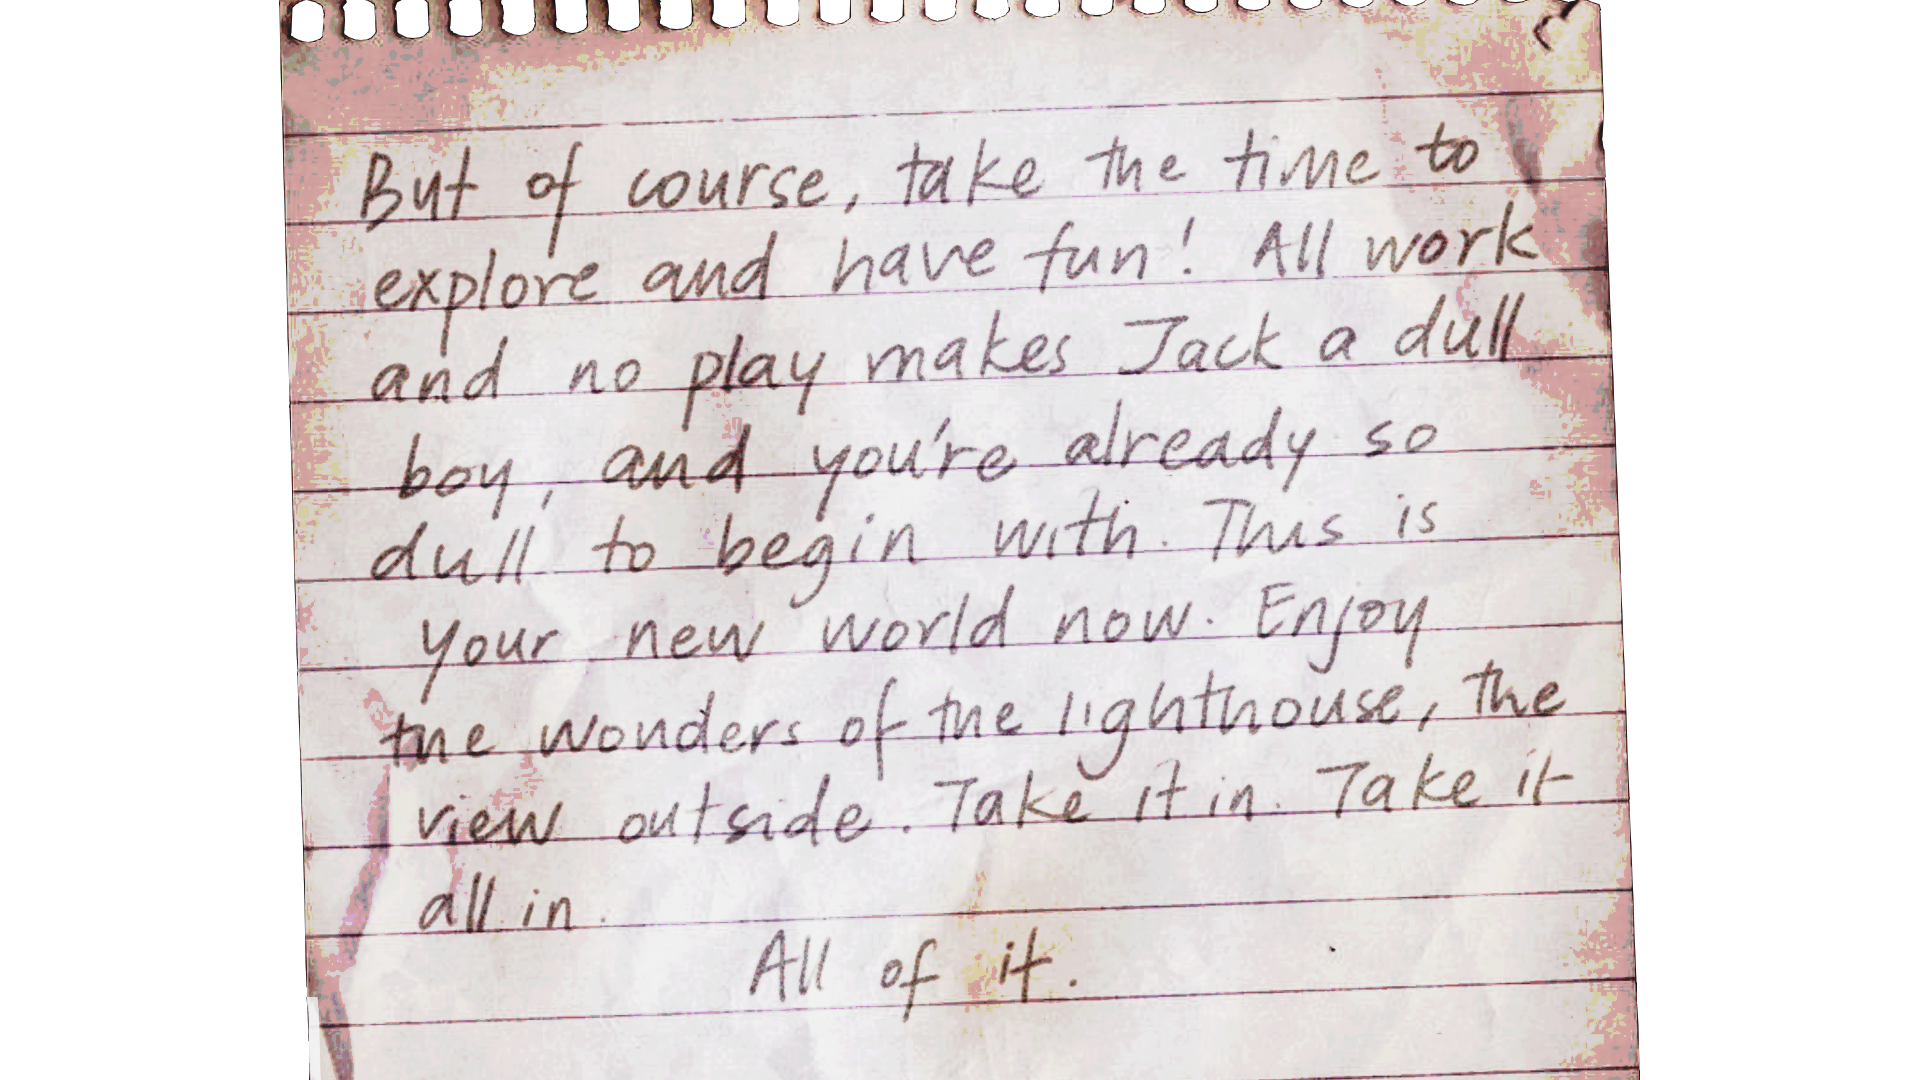 But of course, take the time to
explore and have fun! All work
and no play makes Jack a dull
boy, and you're already so
dull to begin with. This is
your new world now. Enjoy
the wonders of the lighthouse, the
view outside. Take it in. Take it
all in.
All of it.